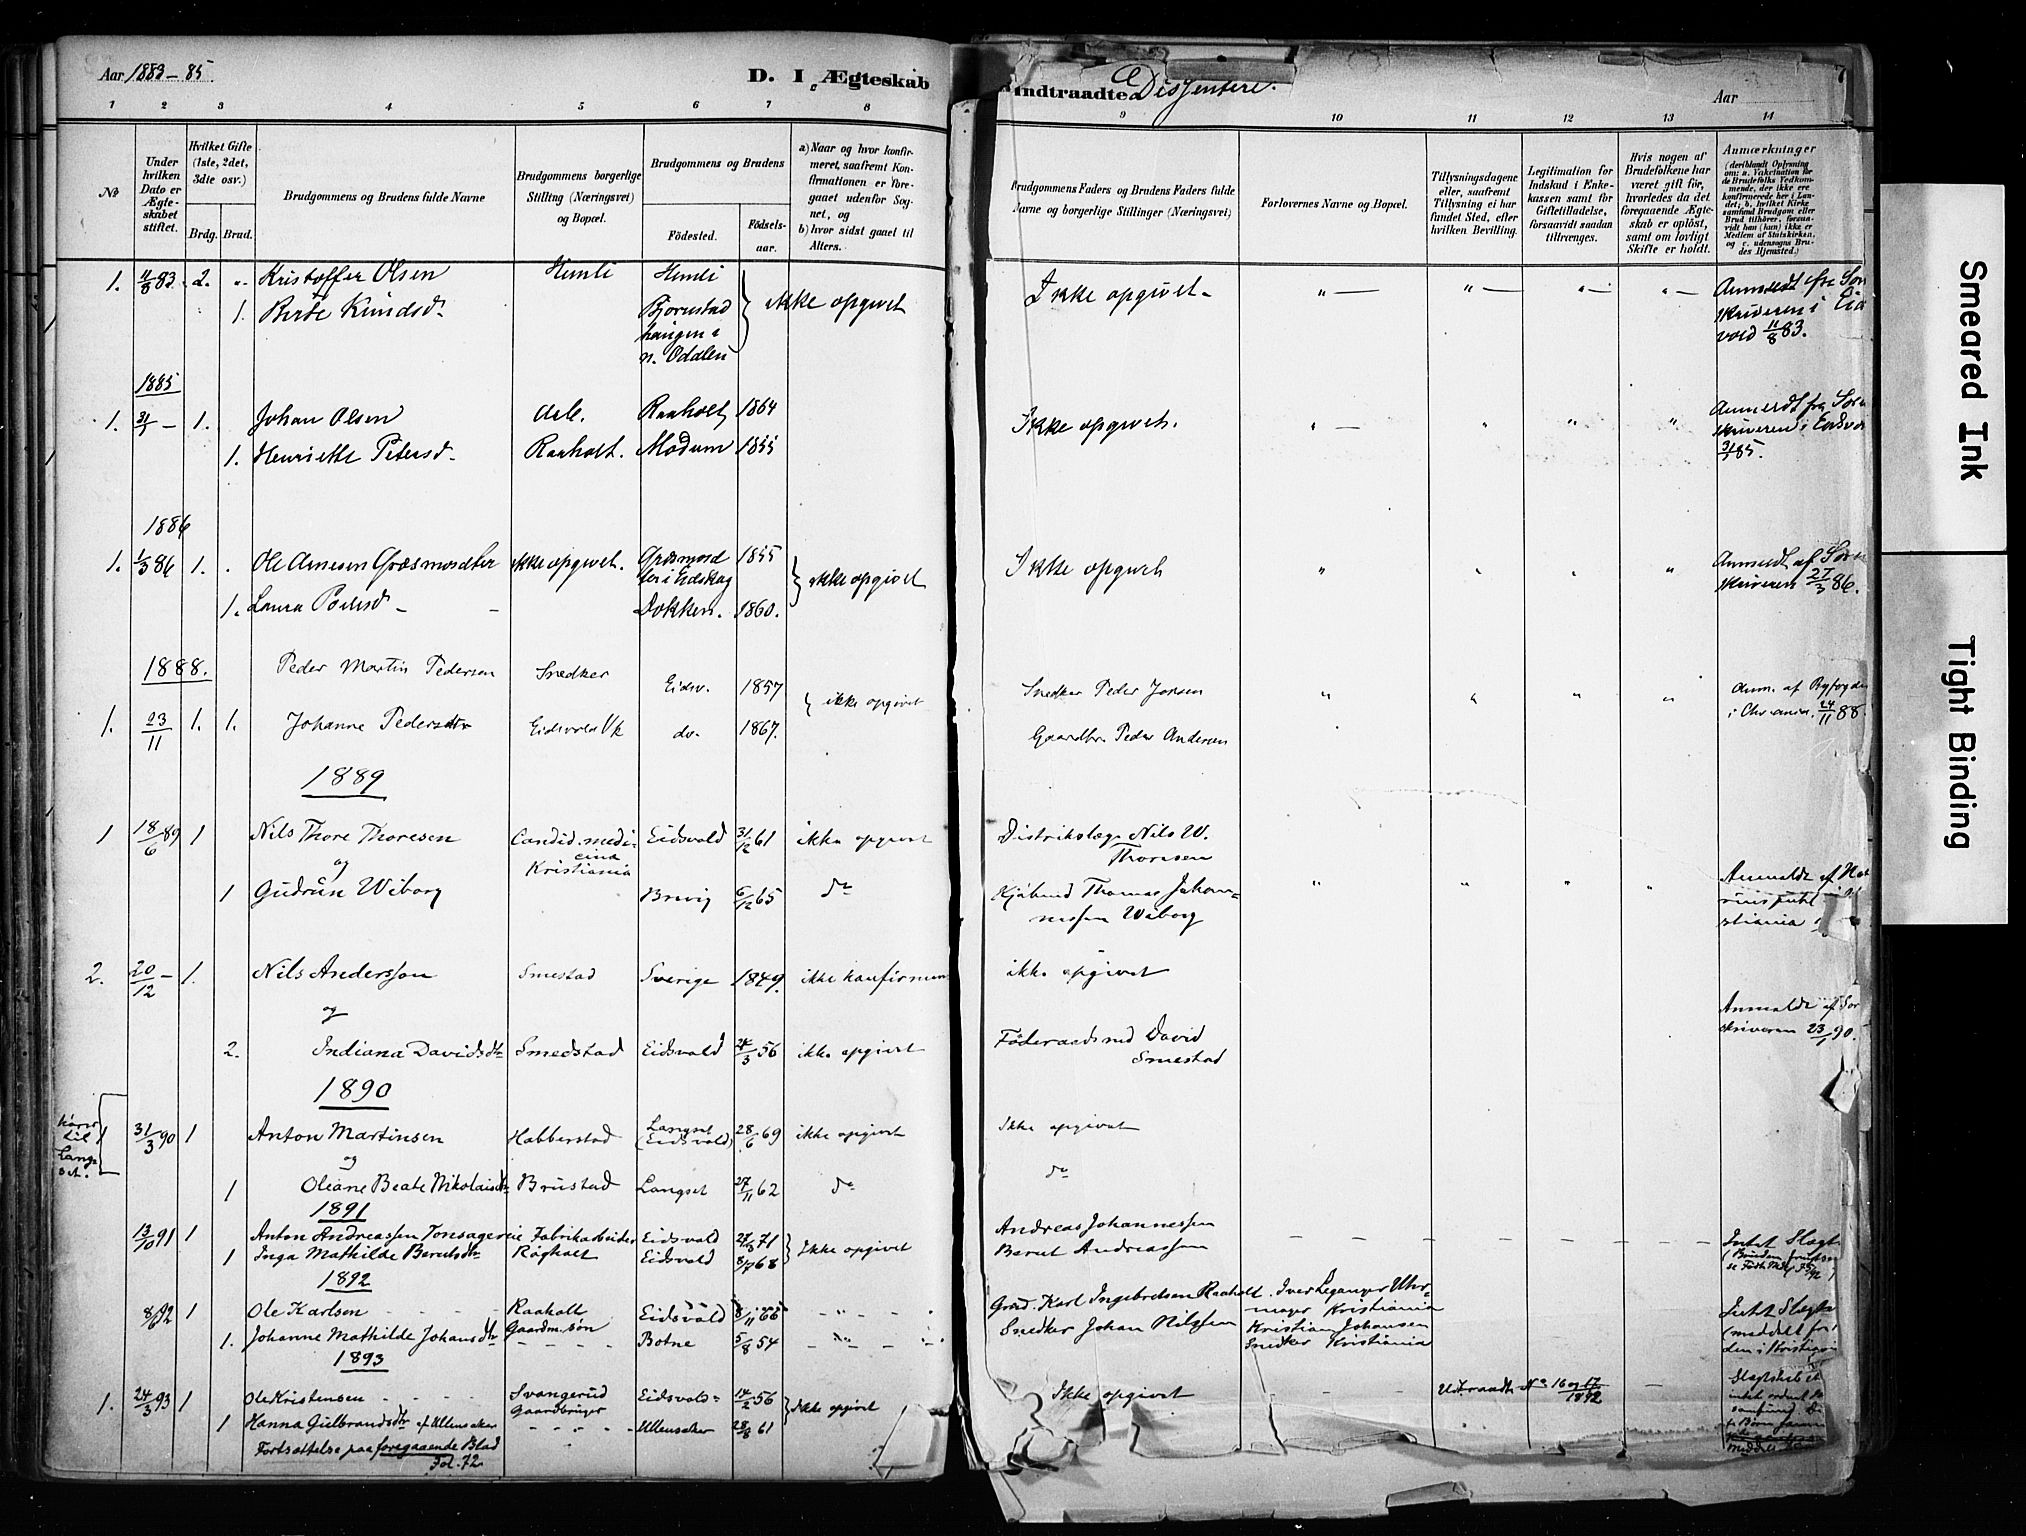 Aar 1883-85.
D. I Ægteskab
Indtraadte Dissentere.
Aar
7
1 2 3 4 5 6 7 8 9 10 11 12 13 14
No
Under hvilken Dato er Ægteskabet stiftet.
Hvilket Gifte (1ste, 2det, 3die osv.)
Brdg. Brud.
Brudgommens og Brudens fulde Navne
Brudgommens borgerlige Stilling (Næringsvei) og Bopæl.
Brudgommens og Brudens
Födested.
Födselsaar.
a) Naar og hvor konfirmeret, saafremt Konfirmationen er foregaaet udenfor Sognet, og
b) hvor sidst gaaet til Alters.
Brudgommens Faders og Brudens Faders fulde Navne og borgerlige Stillinger (Næringsvei)
Forlovernes Navne og Bopæl.
Tillysningsdagene eller, saafremt Tillysning ei har fundet Sted, efter hvilken Bevilling.
Legitimation for Indskud i Enkekassen samt for Giftetilladelse, forsaavidt saadan tiltrænges.
Hvis nogen af Brudefolkene har været gift för, hvorledes da det foregaaende Ægteskab er oplöst, samt om lovligt Skifte er holdt.
Anmærkninger
(deriblandt Oplysning om: a. Vakcination for de Brudefolks Vedkommende, der ikke ere konfirmerede her i Landet; b. hvilket Kirkesamfund Brudgom eller Brud tilhörer, forsaavidt han (hun) ikke er Medlem af Statskirken, og c. udensogns Brudes Hjemsted.)
1. 11/8 83 2. " Kristoffer Olsen Himli Himli
1. Berte Knudsd. Bjørnstad haugen i n. Odalen ikke opgivet
Ikke opgivet - " — " — " — " —
Anmeldt fra Sorenskriveren i Eidsvold 11/8 83.
1885
1. 31/1 — 1. Johan Olsen Arb. Raaholt 1864
1. Henriette Petersd. Raaholt. Modum 1855
Ikke opgivet. " — " " "
Anmeldt fra Sorenskriveren i Eidsvold 3/2 85.
1886
1. 1/3 86 1. Ole Arnesen Græsmosdter ikke opgivet. Græsmosdter i Eidskog 1855
1. Laura Pedersd - - Dokken. 1860. ikke opgivet
Ikke opgivet " " " "
Anmeldt af Sorenskriveren 27/3 86.
1888.
Peder Martin Pedersen Snedker Eidsv. 1857
1. 23/11 1. 1. Johanne Pedersdtr Eidsvolds Vk do. 1867. ikke opgivet
Snedker Peder Jonsen " " " "
Gaardbr. Peder Andersen
Anm. af Byfogden i Chr.ania. 24/11 88.
1889
1 18/6 89 1 Nils Thore Thoresen Candid. medicina Kristiania Eidsvold 31/12 61 ikke opgivet
og
1 Gudrun Wiborg Brevig 6/12 65 do
Distriktslæge Nils W. Thoresen
Kjøbmd Thomas Johannessen Wiborg " " " "
2. 20/12 — 1. Nils Andersson Smestad Sverige 1849. ikke konfirmeret
og
2. Indiana Davidsdtr Smedstad Eidsvold 24/3 56 ikke opgivet
ikke opgivet
Föderaadsmd David Smestad
Anmeldt af Sorenskriveren 23/1 90.
1890
hører til Langset.
1 31/3 90 1 Anton Martinsen Habberstad Langset (Eidsvold) 28/6 69 ikke opgivet
og
1 Oliane Beate Nikolaisdtr Brustad Langset 27/11 62 do
Ikke opgivet
do
1891
13/10 91 1 Anton Andreassen Tonsagereie Fabrikarbeider Eidsvold 27/3 71
1 Inga Mathilde Berntsdtr Røgholt Eidsvold 8/7 68 Ikke opgivet
Andreas Johannessen
Bernt Andreassen — — — — — — —
1892
8/6 92 1 Ole Karlsen Raaholt Gaardm.søn Eidsvold 8/11 66
1. Johanne Mathilde Johansdtr Botne 5/8 54
Grd. Karl Ingebretsen Raaholt
Snedker Johan Nilssen
Iver Leganger Uhrmager Kristiania
Kristian Johansen Snedker Kristiania
1893
1. 24/3 93 1 Ole Kristensen Svangerud Gaardbruger Eidsvold 14/2 56
1 Hanna Gulbrandsdtr af Ullensaker Ullensaker 28/8 61 Ikke opgivet
Ikke opgivet
Udtraadt No 16 og 17 1892
Fortsættelse paa foregaaende Blad Fol. 72
Smeared Ink
Tight Binding